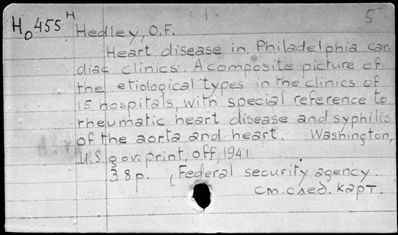 5
Ho455 H
Hedley, O.F.
Heart disease in Philadelphia car
diac clinics. A composite picture of
the etiological types in the clinics of
15 hospitals, with special reference to
rheumatic heart disease and syphilis
of the aorta and heart. Washington,
U.S. gov. print, off, 1941.
38p. (Federal security agency.
см. след. карт.